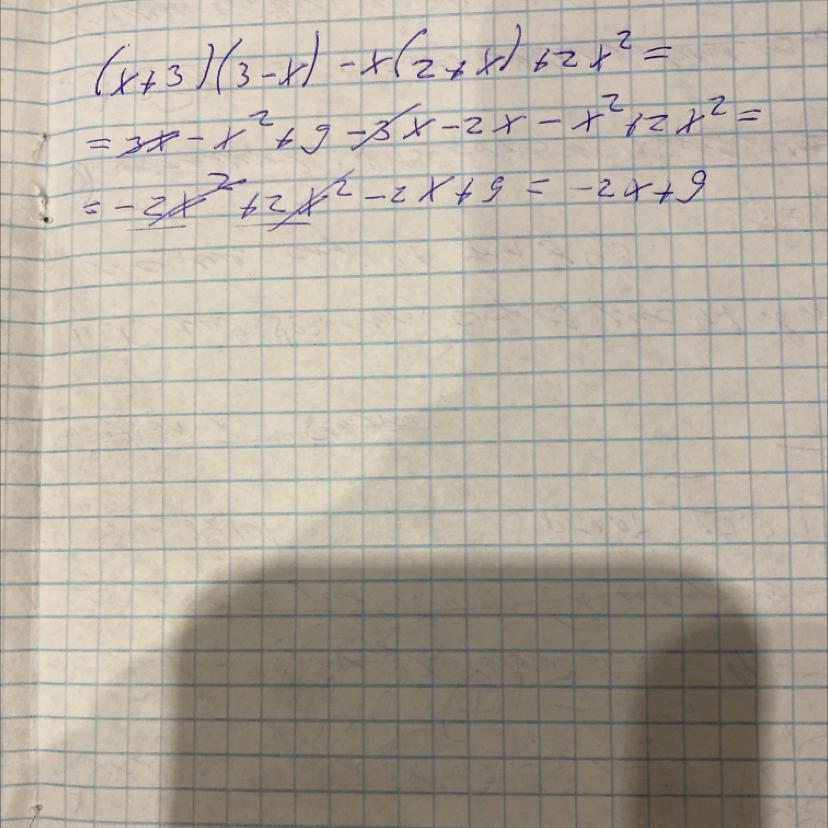 (x+3)(3-x) -x(2+x)+2x²=
=3x-x²+9-3x-2x-x²+2x²=
=-2x²+2x²-2x+9=-2x+9